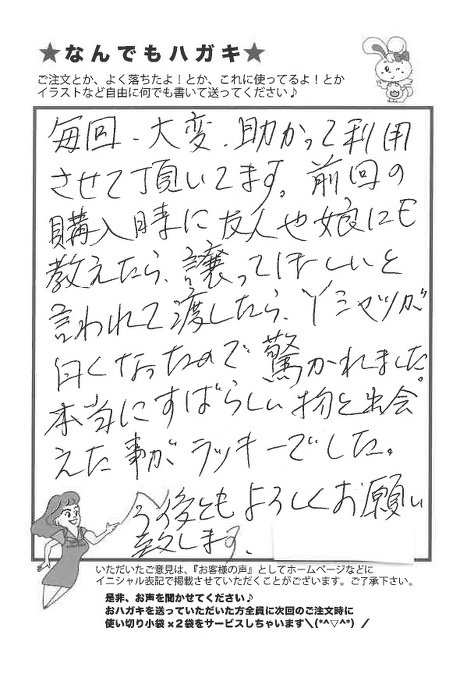 ★なんでもハガキ★
ご注文とか、よく落ちたよ!とか、これに使ってるよ!とか
イラストなど自由に何でも書いて送ってください♪
毎回、大変、助かって利用
させて頂いてます。前回の
購入時に友人や娘にも
教えたら、譲ってほしいと
言われて渡したら、Yシャツが
白くなったので驚かれました。
本当にすばらしい物と出会
えた事がラッキーでした。
今後ともよろしくお願い
致します。
いただいたご意見は、『お客様の声』としてホームページなどに
イニシャル表記で掲載させていただくことがございます。ご了承下さい。
是非、お声を聞かせてください♪
おハガキを送っていただいた方全員に次回のご注文時に
使い切り小袋×2袋をサービスしちゃいます＼(*^▽^*)／